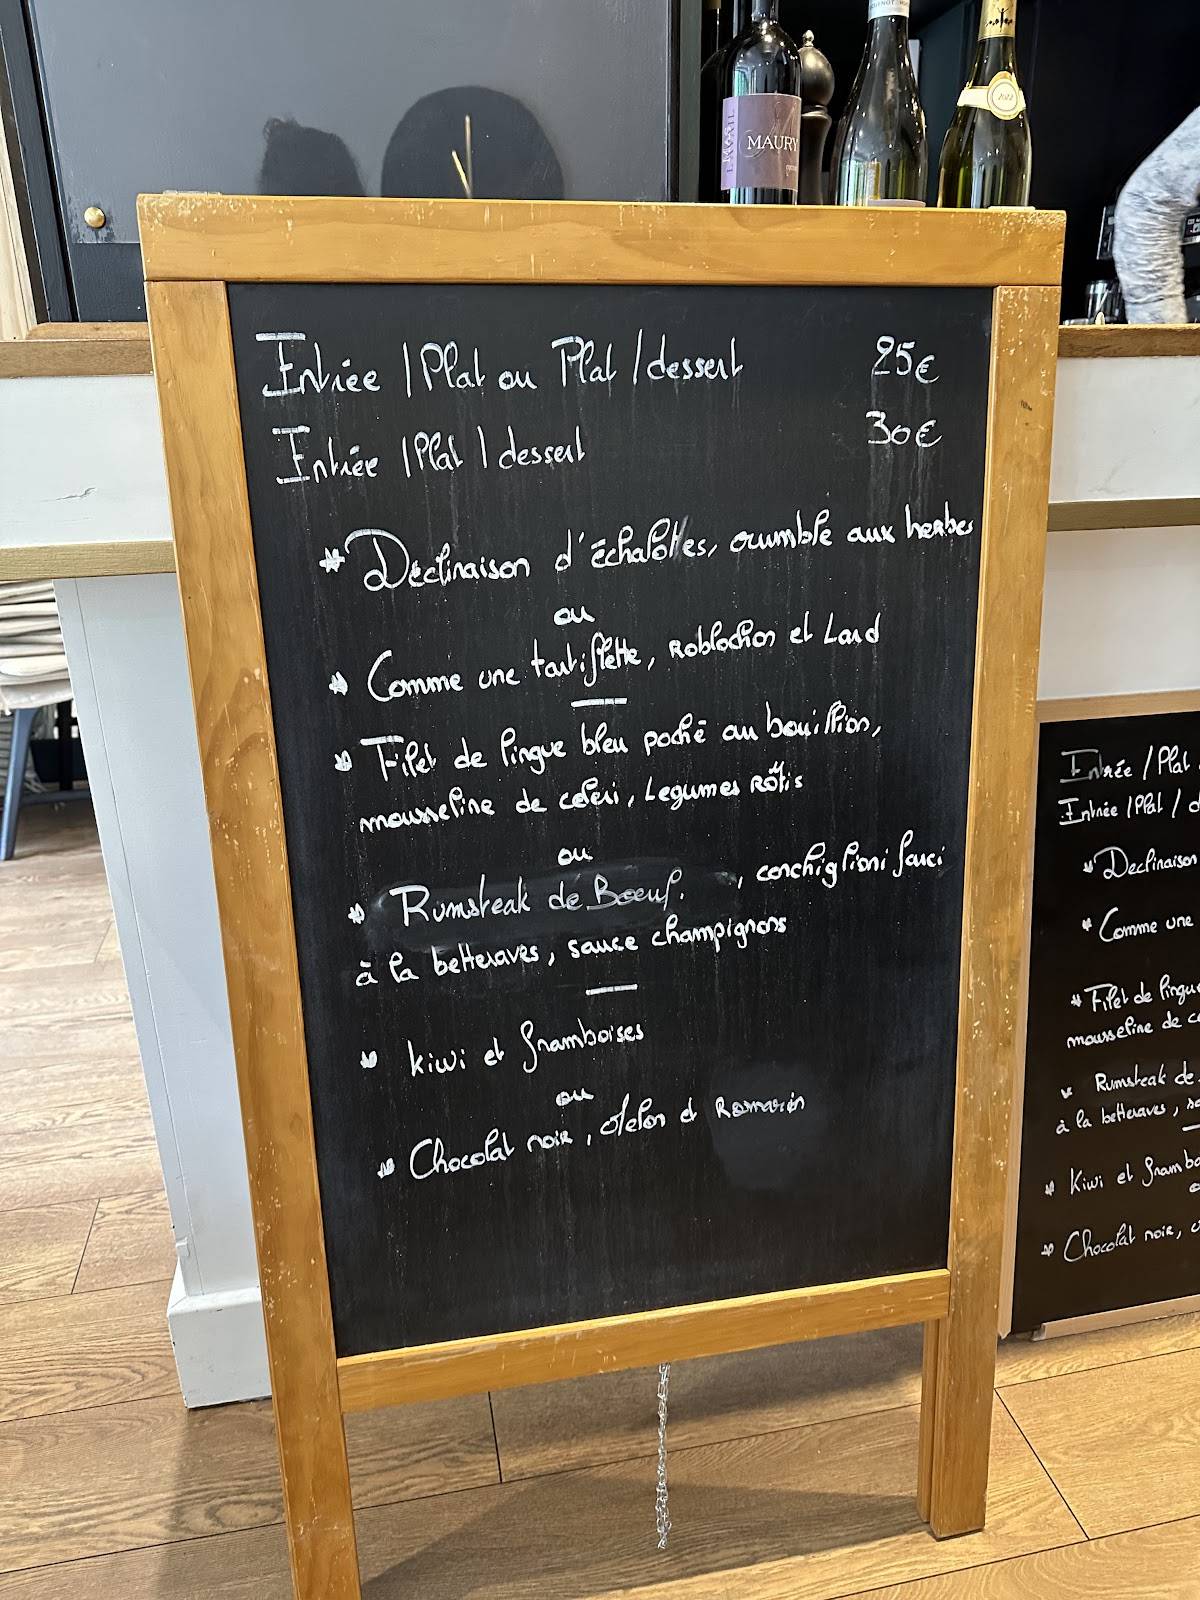 MAURY
2022
Entrée / Plat ou Plat / dessert 25€
Entrée / Plat / dessert 30€
* Déclinaison d'échalottes, crumble aux herbes
ou
* Comme une tartiflette, Roblochon et Lard
* Filet de lingue bleu poché au bouillon,
mousseline de celeri, Légumes Rôtis
ou
* Rumsteak de Boeuf. , conchiglioni farci
à la betteraves, sauce champignons
* Kiwi et framboises
ou
* Chocolat noir, citron et Romarin
Entrée / Plat
Entrée / Plat / d
* Declinaison
* Comme une
* Filet de lingue
mousseline de ce
* Rumsteak de
à la betteraves, sa
* Kiwi et frambo
* Chocolat noir, c